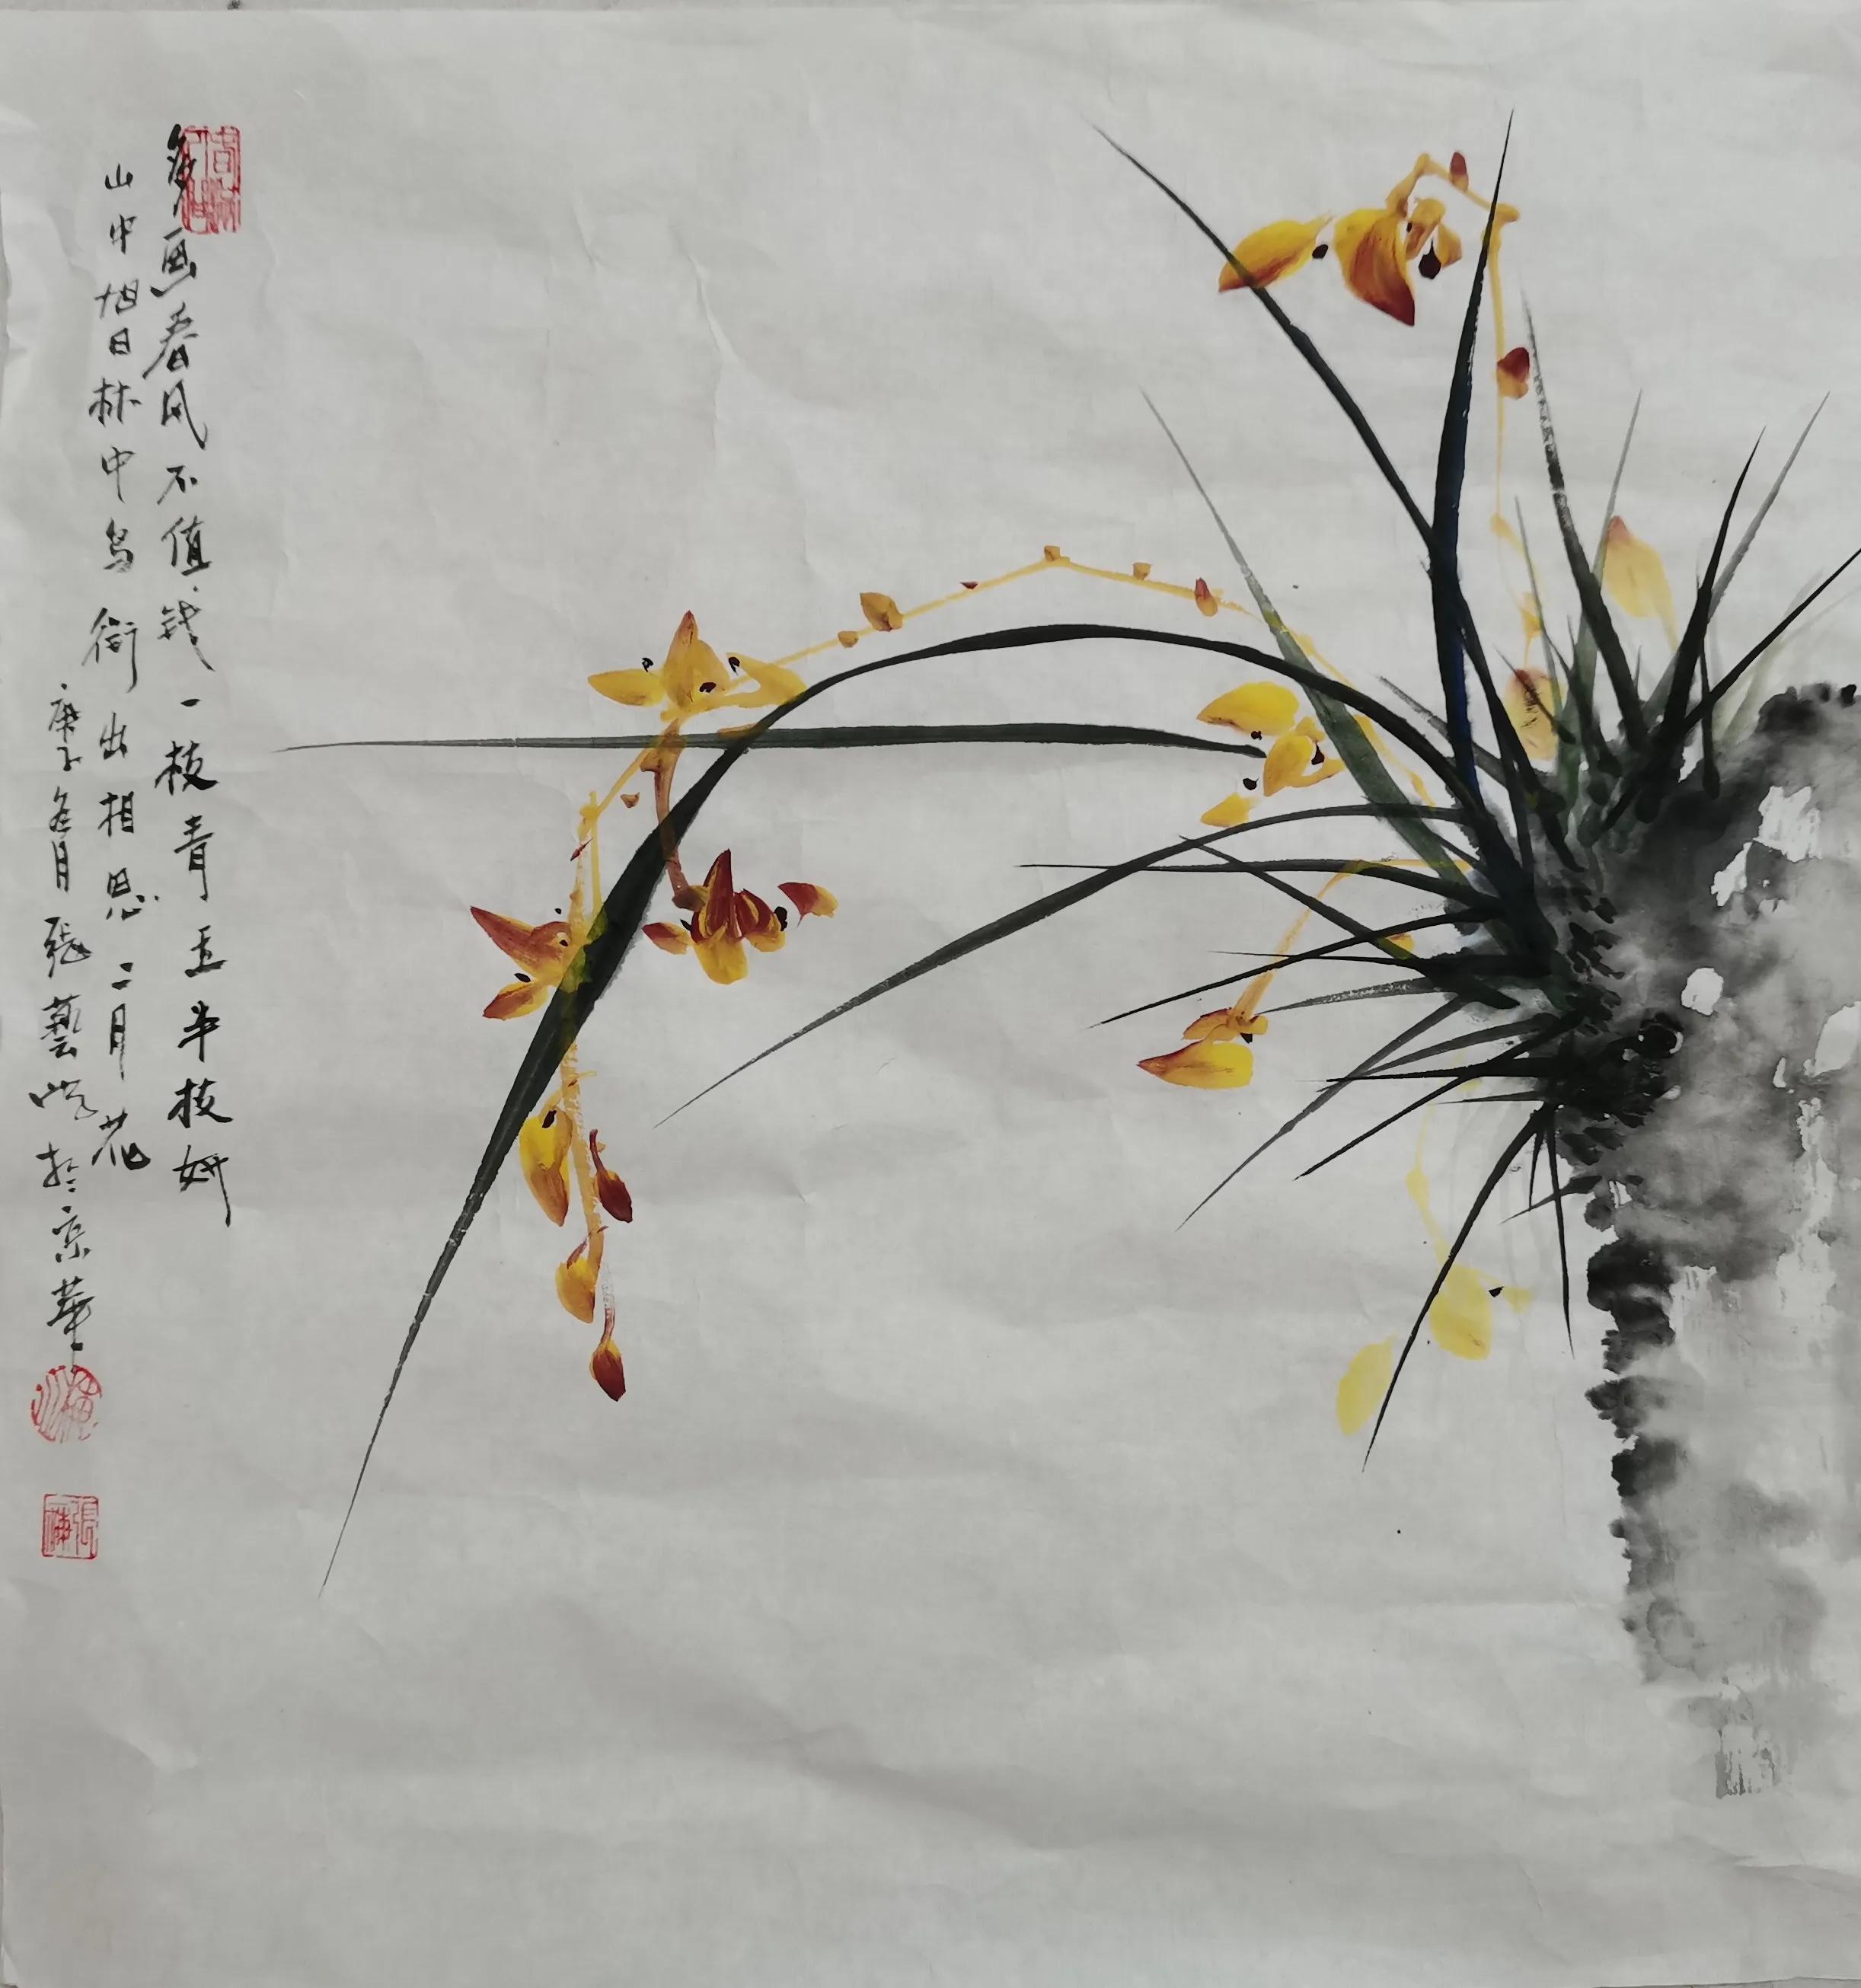 画春风不值钱一枝青玉半枝妍
山中旭日林中鸟衔出相思二月花
庚子年月張藝 於京華
張